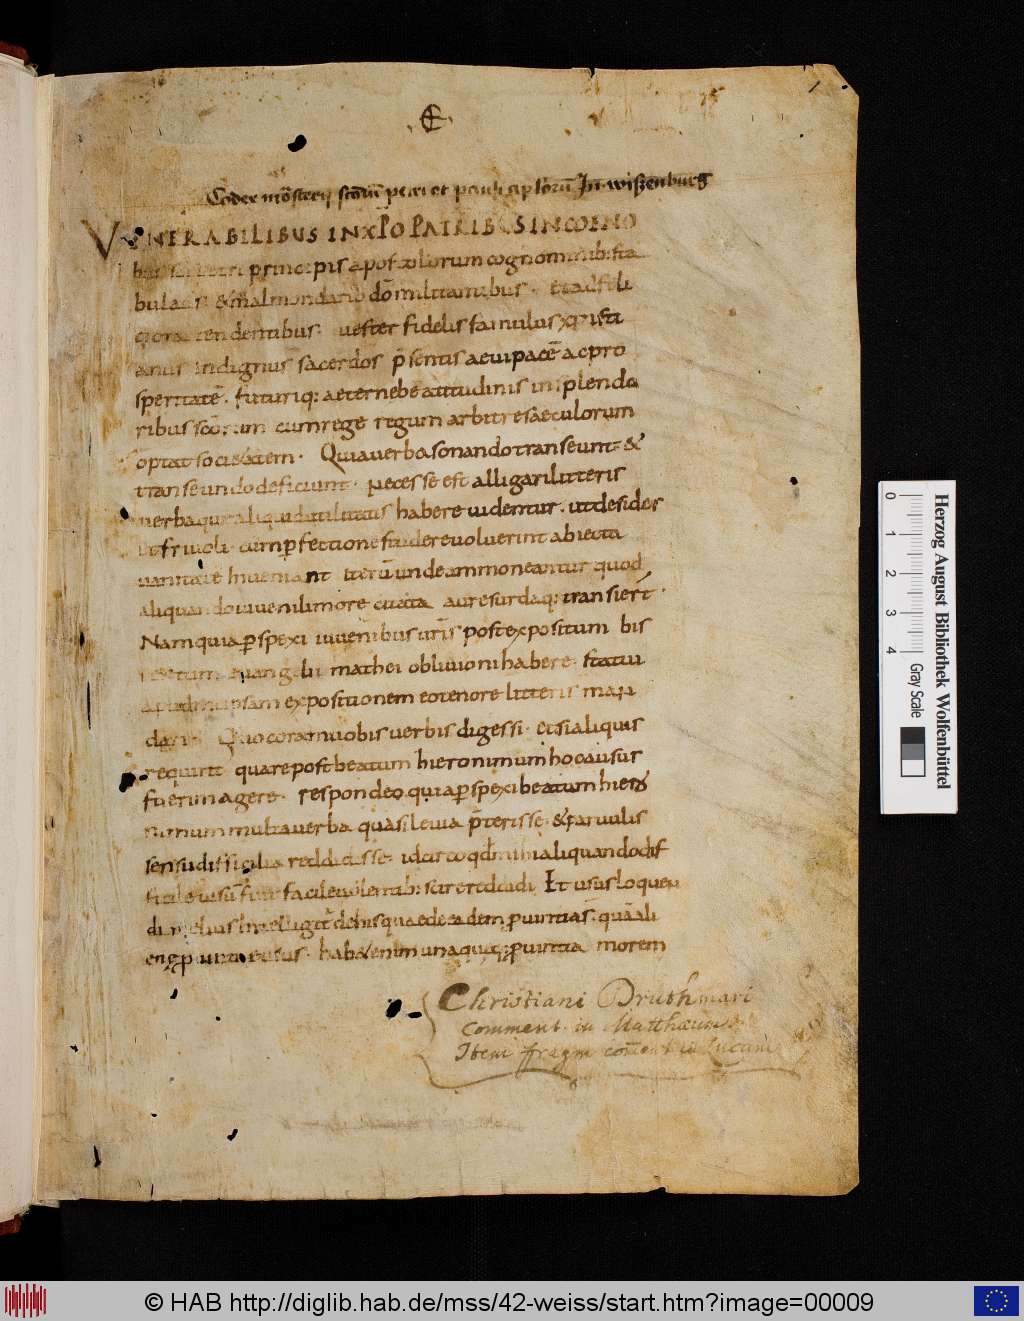 E
Codex mōsterij sctōrū petri et pauli aplorū In wißenburg
VENERABILIBUS IN XPO PATRIBUS IN COENO
principis apostolorum cognominib: sta
bulaus & malmondario dn̄o militantibus. et aeccl
dentibus. uester fidelis famulus xpisti
anus indignus sacerdos p̄sentis aeui pacē ac pro
speritatē. futuriq: aeterne beatitudinis in splendo
ribus scōrum cum rege regum arbitre saeculorum
optat societatem. Quia uerba sonando transeunt &
transeundo deficiunt. necesse est alligari litteris
uerba quae aliquid utilitatis habere uidentur. ut desider
friuoli. cum perfectione studere uoluerint abiecta
uanitate inueniant iterū unde ammoneantur quod
aliquando iuuenili more caeca aure surdaq: transierī.
Nam quia perspexi iuuenibus ur̄is post expositum bis
textum euangelii mathei obliuioni habere. statui
ipsam expositionem eo tenore litteris man
dari. Quo coram uobis uerbis digessi. et si aliquis
requirit quare post beatum hieronimum hoc ausus
fuerim agere. respondeo quia perspexi beatum hiero
nimum multa uerba quasi leuia p̄terisse. & paruulis
sensu difficilia reddidisse. idcirco qd̄ mihi aliquando dif
ficile uisū fuit facile uolentib: scire reddidi. Et usus loquen
di melius intellegit̄ de his quae de eadem prouintia s̄. quā ali
enę prouintiae usus. hab& enim unaquęq: prouintia morem
Christiani Druthmari
Comment. in Matthæum
Item fragm coment in Lucam
Herzog August Bibliothek Wolfenbüttel
0 1 2 3 4 Gray Scale
© HAB http://diglib.hab.de/mss/42-weiss/start.htm?image=00009